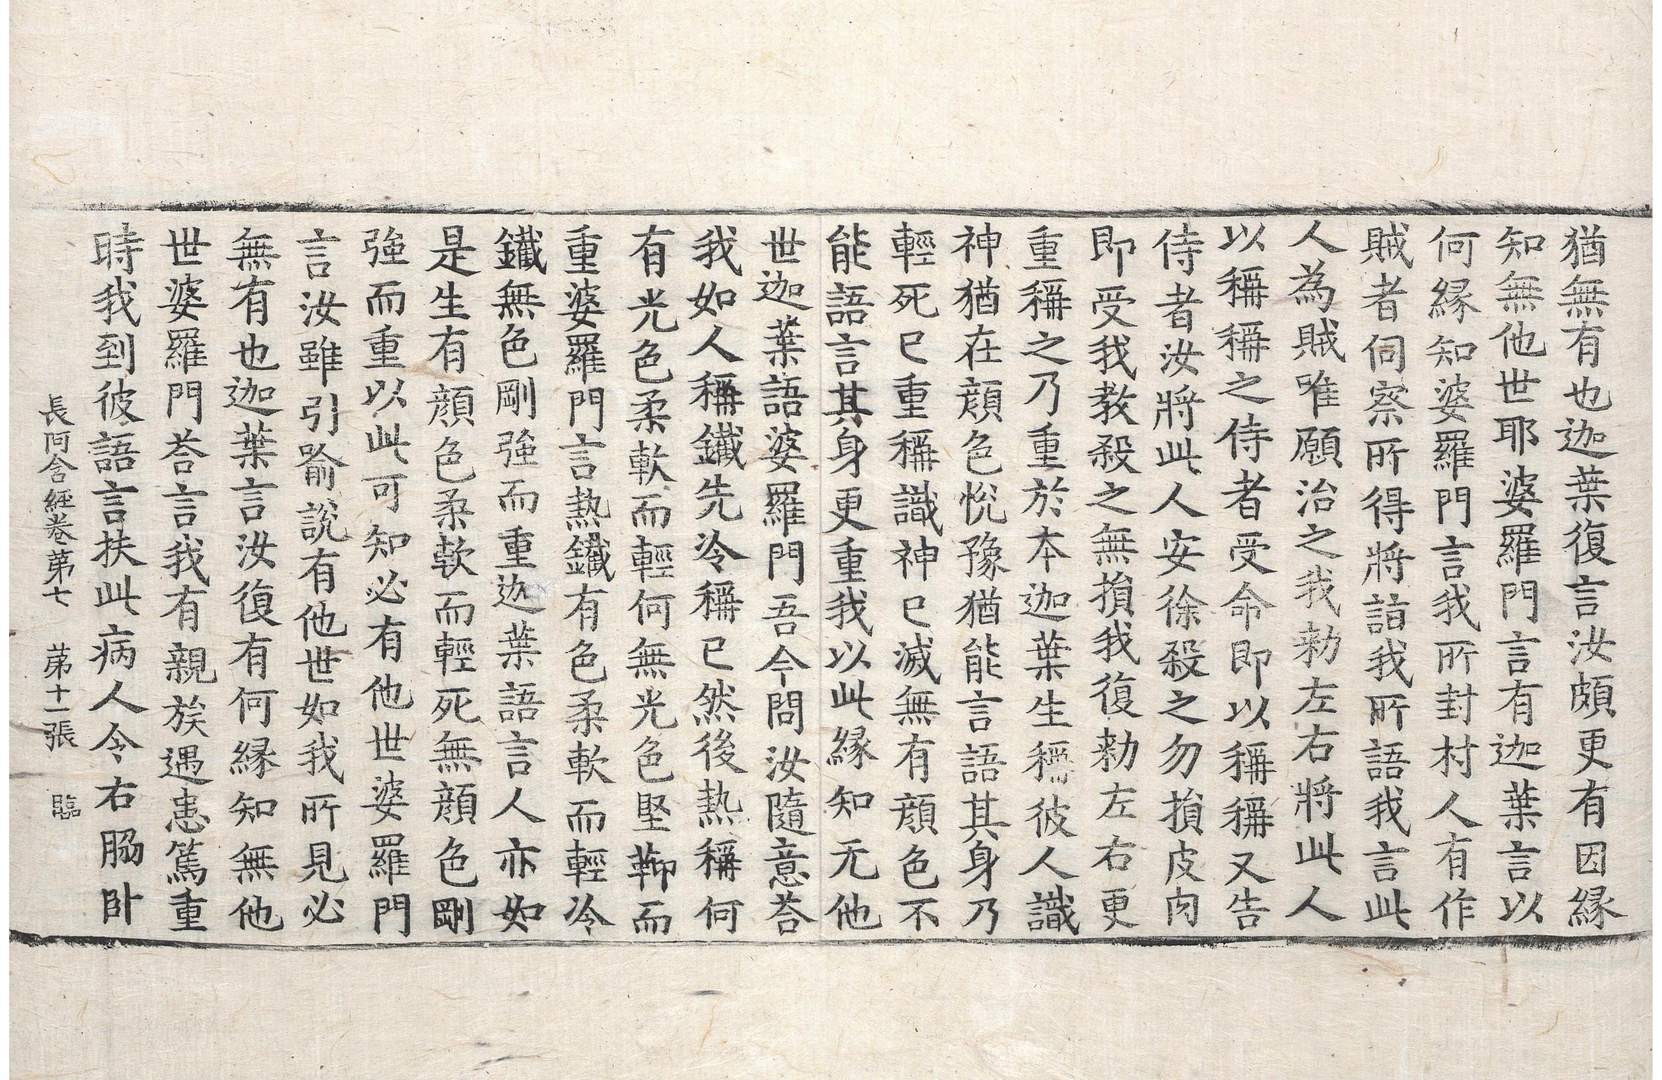 猶無有也迦葉復言汝頗更有因緣
知無他世耶婆羅門言有迦葉言以
何緣知婆羅門言我所封村人有作
賊者伺察所得將詣我所語我言此
人為賊唯願治之我勑左右將此人
以稱稱之侍者受命即以稱稱又告
侍者汝將此人安徐殺之勿損皮肉
即受我教殺之無損我復勑左右更
重稱之乃重於本迦葉生稱彼人識
神猶在顔色悅豫猶能言語其身乃
輕死已重稱識神已滅無有顔色不
能語言其身更重我以此緣知无他
世迦葉語婆羅門吾今問汝隨意荅
我如人稱鐵先冷稱已然後熱稱何
有光色柔軟而輕何無光色堅䩕而
重婆羅門言熱鐵有色柔軟而輕冷
鐵無色剛強而重迦葉語言人亦如
是生有顔色柔軟而輕死無顔色剛
強而重以此可知必有他世婆羅門
言汝雖引喻說有他世如我所見必
無有也迦葉言汝復有何緣知無他
世婆羅門荅言我有親族遇患篤重
時我到彼語言扶此病人令右脇卧
長阿含經卷第七 第十一張 臨